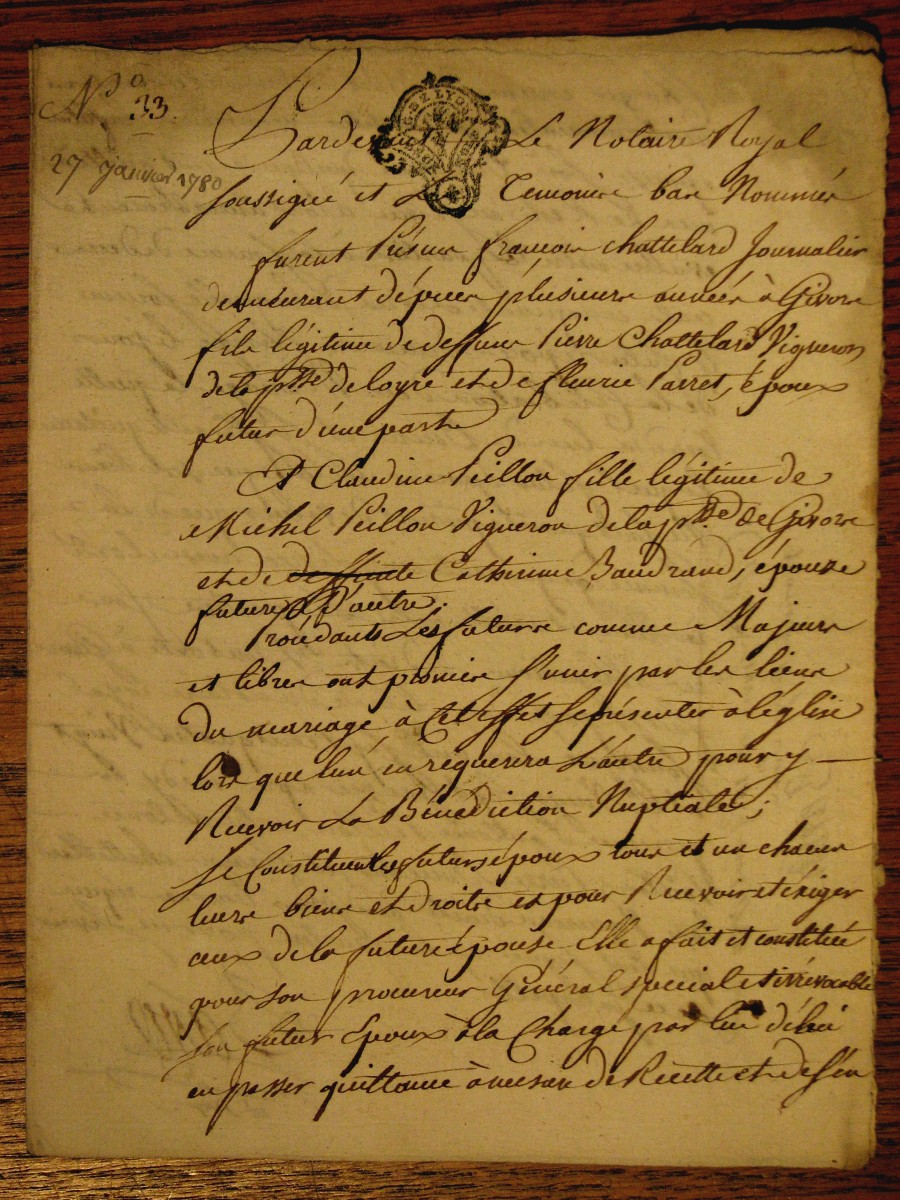 N.o 33.
27 janvier 1780
G. DE LYON
Pardevant Le Notaire Royal
soussigné et Les Temoins bas Nommés
furent Présens françois Chattelard Journalier
demeurant dépuis plusieurs années à Givors
fils légitime de deffunt Pierre Chattelard Vigneron
de la psse de loyre et de fleurie Parret, époux
futur d'une part
Et Claudine Peillon fille légitime de
Michel Peillon Vigneron de la psse de Givors
et de deffunte Catherine Baudrand, épouse
future d'autre;
Procédants Les futurs comme Majeurs
et libres ont promis s'unir par les liens
du mariage à Cet effet se présenter à l'église
lors que l'un en requerera L'autre pour y —
Recevoir La Bénédiction Nuptiale;
Se Constituent les futurs époux tous et un chacun
leurs biens et droits et pour Recevoir et éxiger
ceux de la future épouse Elle a fait et constitué
pour son procureur Général special et irrévocable
son futur Epoux à la Charge par lui
en passer quittance à mesure de Recette et de s'en